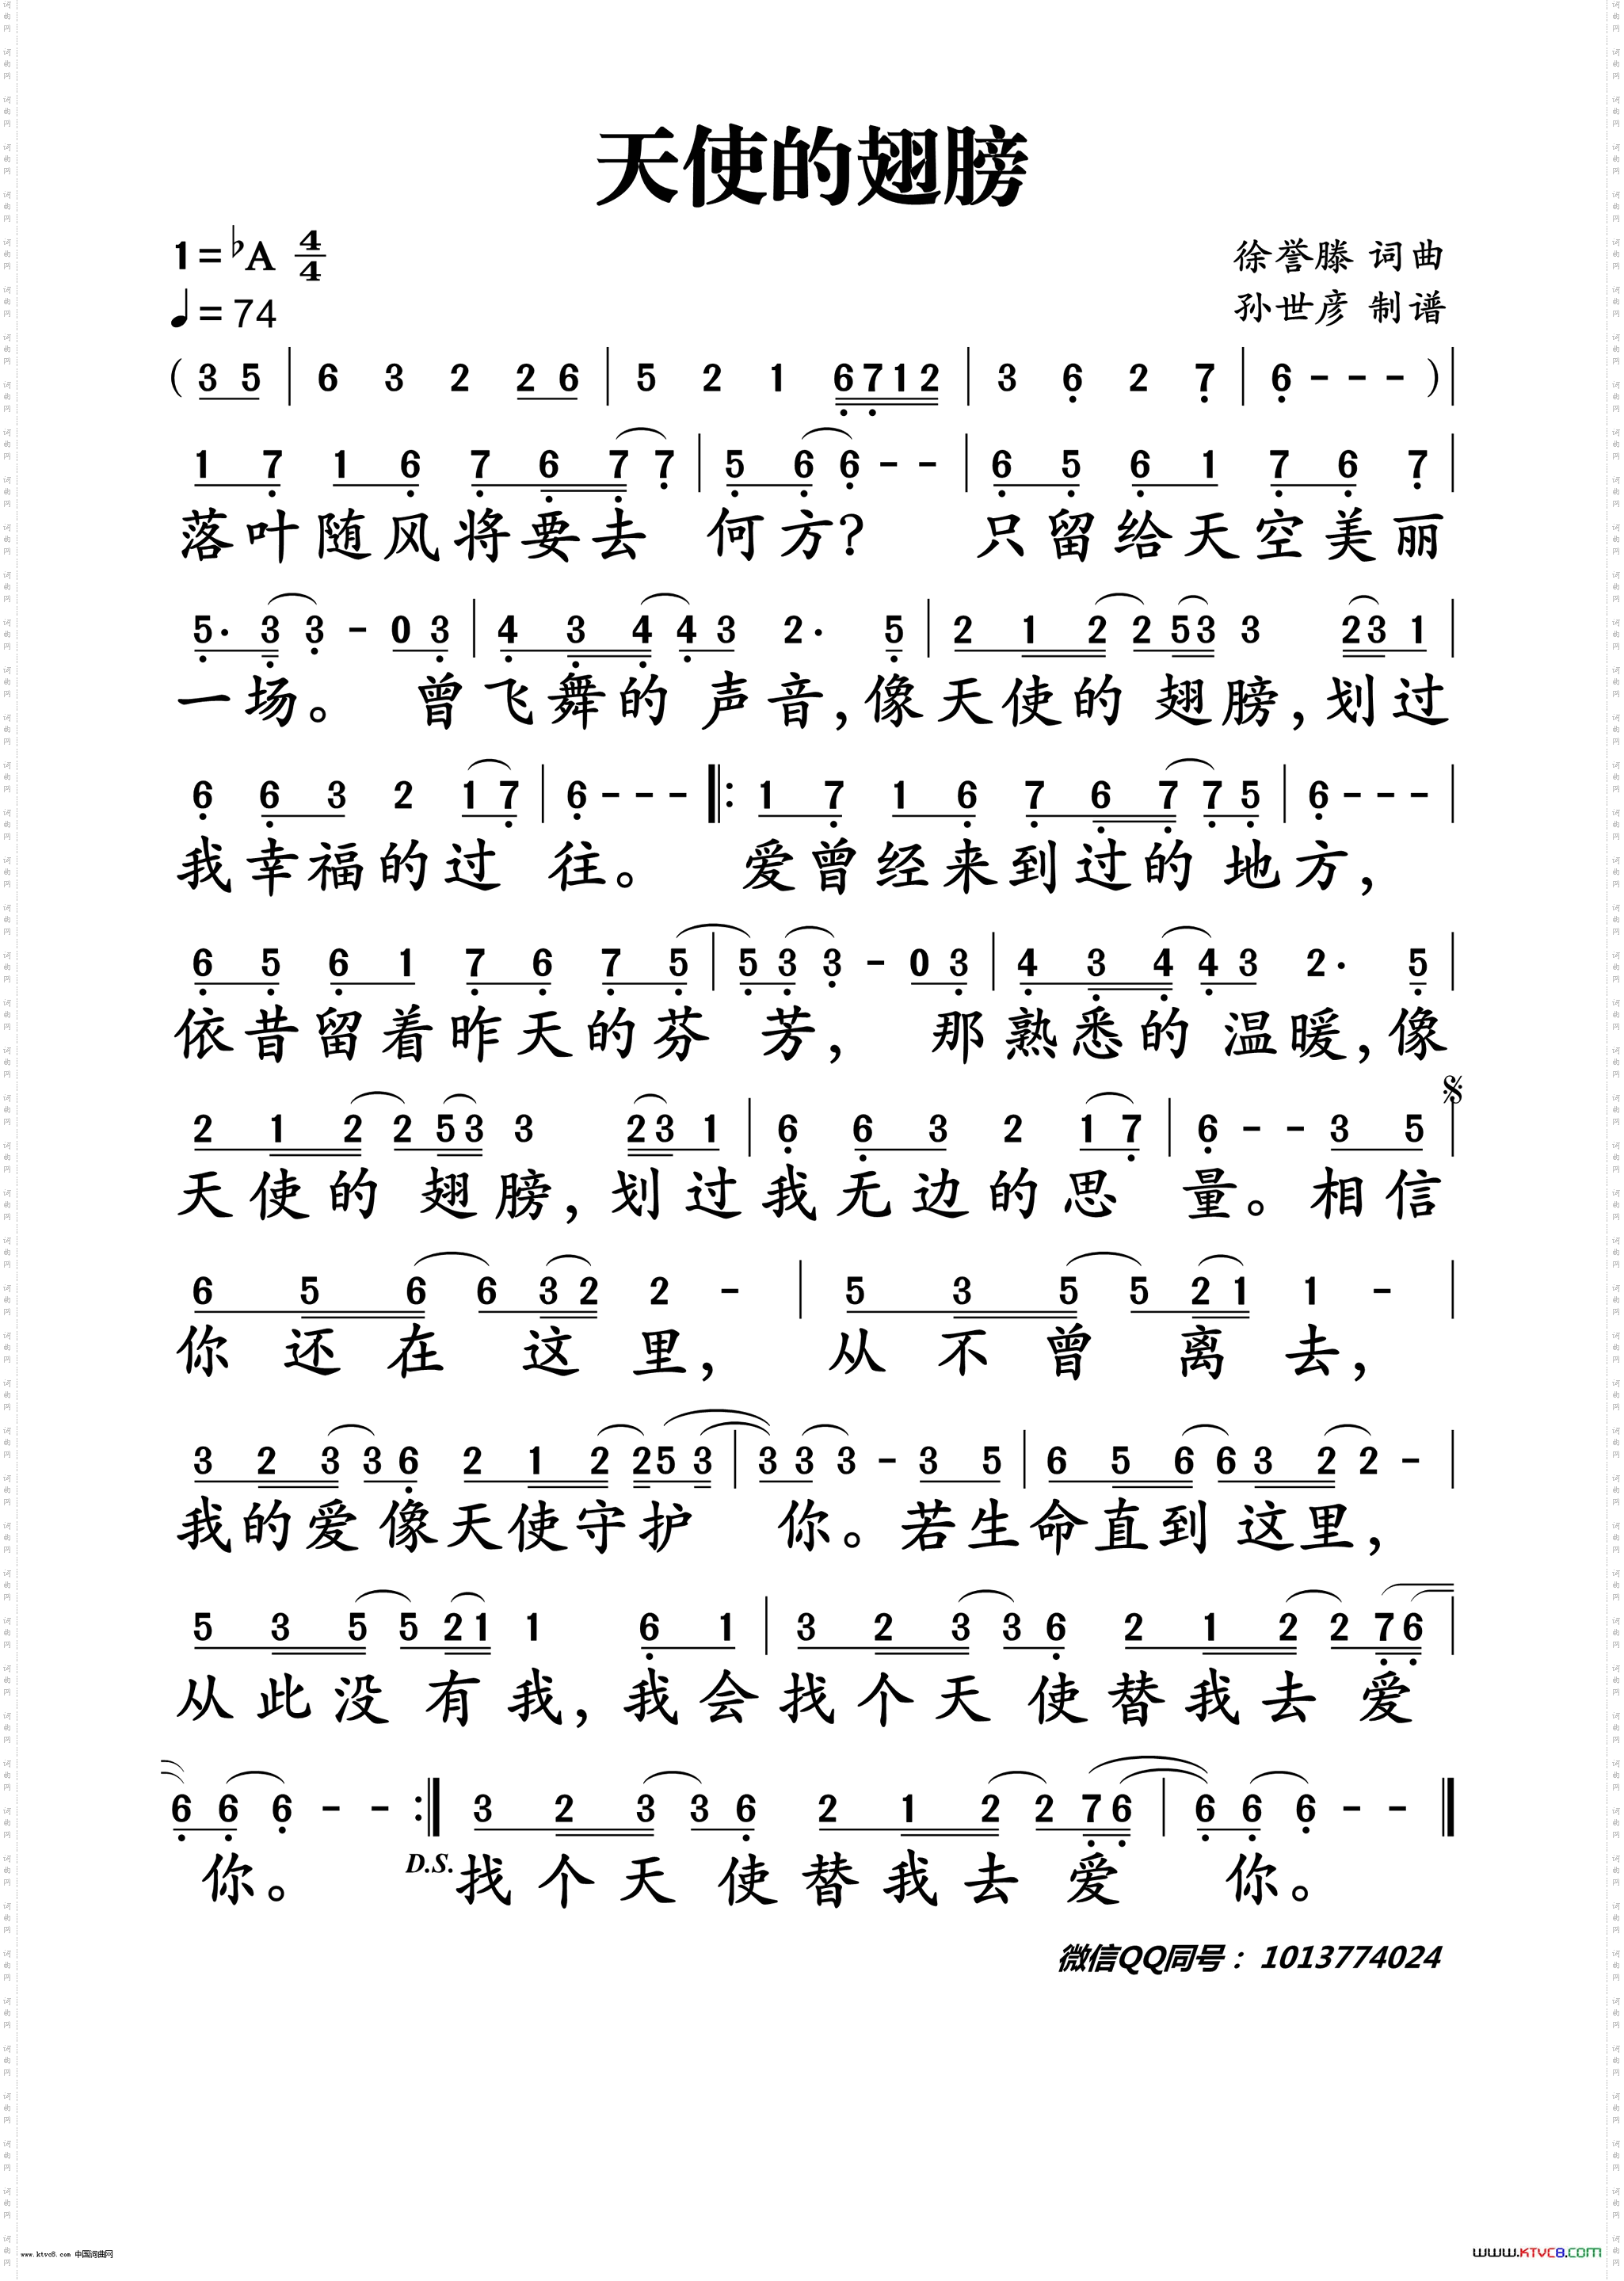 天使的翅膀
1=♭A 4/4
徐誉滕 词曲
♩=74
孙世彦 制谱
( 3 5 | 6 3 2 2 6 | 5 2 1 6 7 1 2 | 3 6 2 7 | 6 - - - ) |
1 7 1 6 7 6 7 7 | 5 6 6 - - | 6 5 6 1 7 6 7 |
落叶随风将要去 何方? 只留给天空美丽
5· 3 3 - 0 3 | 4 3 4 4 3 2· 5 | 2 1 2 2 5 3 3 2 3 1 |
一场。 曾飞舞的 声音,像天使的 翅膀,划过
6 6 3 2 1 7 | 6 - - - |: 1 7 1 6 7 6 7 7 5 | 6 - - - |
我幸福的过 往。 爱曾经来到过的 地方,
6 5 6 1 7 6 7 5 | 5 3 3 - 0 3 | 4 3 4 4 3 2· 5 |
依昔留着昨天的芬 芳, 那熟悉的 温暖,像
2 1 2 2 5 3 3 2 3 1 | 6 6 3 2 1 7 | 6 - - 3 5 |
天使的 翅膀,划过我无边的思 量。相信
6 5 6 6 3 2 2 - | 5 3 5 5 2 1 1 - |
你还在 这里, 从不曾 离去,
3 2 3 3 6 2 1 2 2 5 3 | 3 3 3 - 3 5 | 6 5 6 6 3 2 2 - |
我的爱像天使守护 你。若生命直到这里,
5 3 5 5 2 1 1 6 1 | 3 2 3 3 6 2 1 2 2 7 6 |
从此没 有我,我会找个天 使替我去 爱
6 6 6 - - :| 3 2 3 3 6 2 1 2 2 7 6 | 6 6 6 - - |
你。 D.S. 找个天 使替我去 爱 你。
微信QQ同号：1013774024
www.ktvc8.com 中国词曲网
WWW.KTVC8.COM